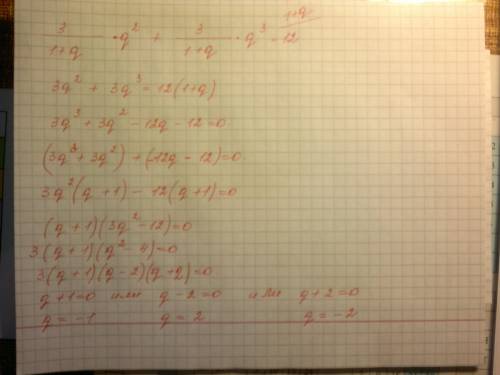 3/(1+q) · q² + 3/(1+q) · q³ = 12 (1+q
3q² + 3q³ = 12(1+q)
3q³ + 3q² - 12q - 12 = 0
(3q³ + 3q²) + (-12q - 12) = 0
3q²(q + 1) - 12(q + 1) = 0
(q + 1)(3q² - 12) = 0
3(q + 1)(q² - 4) = 0
3(q + 1)(q - 2)(q + 2) = 0
q + 1 = 0 или q - 2 = 0 или q + 2 = 0
q = -1 q = 2 q = -2